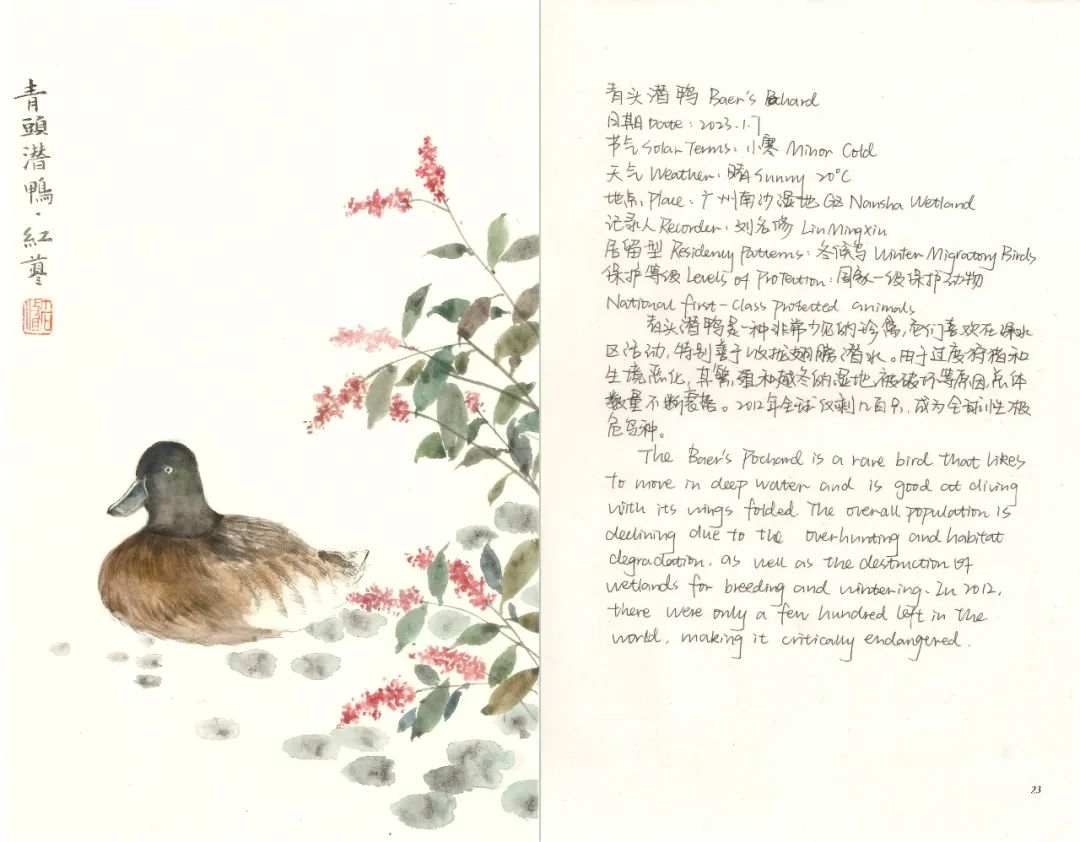 青頭潛鴨·紅蓼
青头潜鸭 Baer's Pochard
日期 Date: 2023.1.7
节气 Solar Terms: 小寒 Minor Cold
天气 Weather: 晴 Sunny 20°C
地点 Place: 广州南沙湿地 GZ Nansha Wetland
记录人 Recorder: 刘名修 Liu Mingxiu
居留型 Residency Patterns: 冬候鸟 Winter Migratory Birds
保护等级 Levels of Protection: 国家一级保护动物
National first-class protected animals
青头潜鸭是一种非常少见的珍禽,它们喜欢在深水
区活动,特别善于收拢翅膀潜水。由于过度狩猎和
生境恶化,其繁殖和越冬的湿地被破坏等原因,总体
数量不断衰落。2012年全球仅剩几百只,成为全球性极
危鸟种。
The Baer's Pochard is a rare bird that likes
to move in deep water and is good at diving
with its wings folded. The overall population is
declining due to the overhunting and habitat
degradation, as well as the destruction of
wetlands for breeding and wintering. In 2012,
there were only a few hundred left in the
world, making it critically endangered.
23